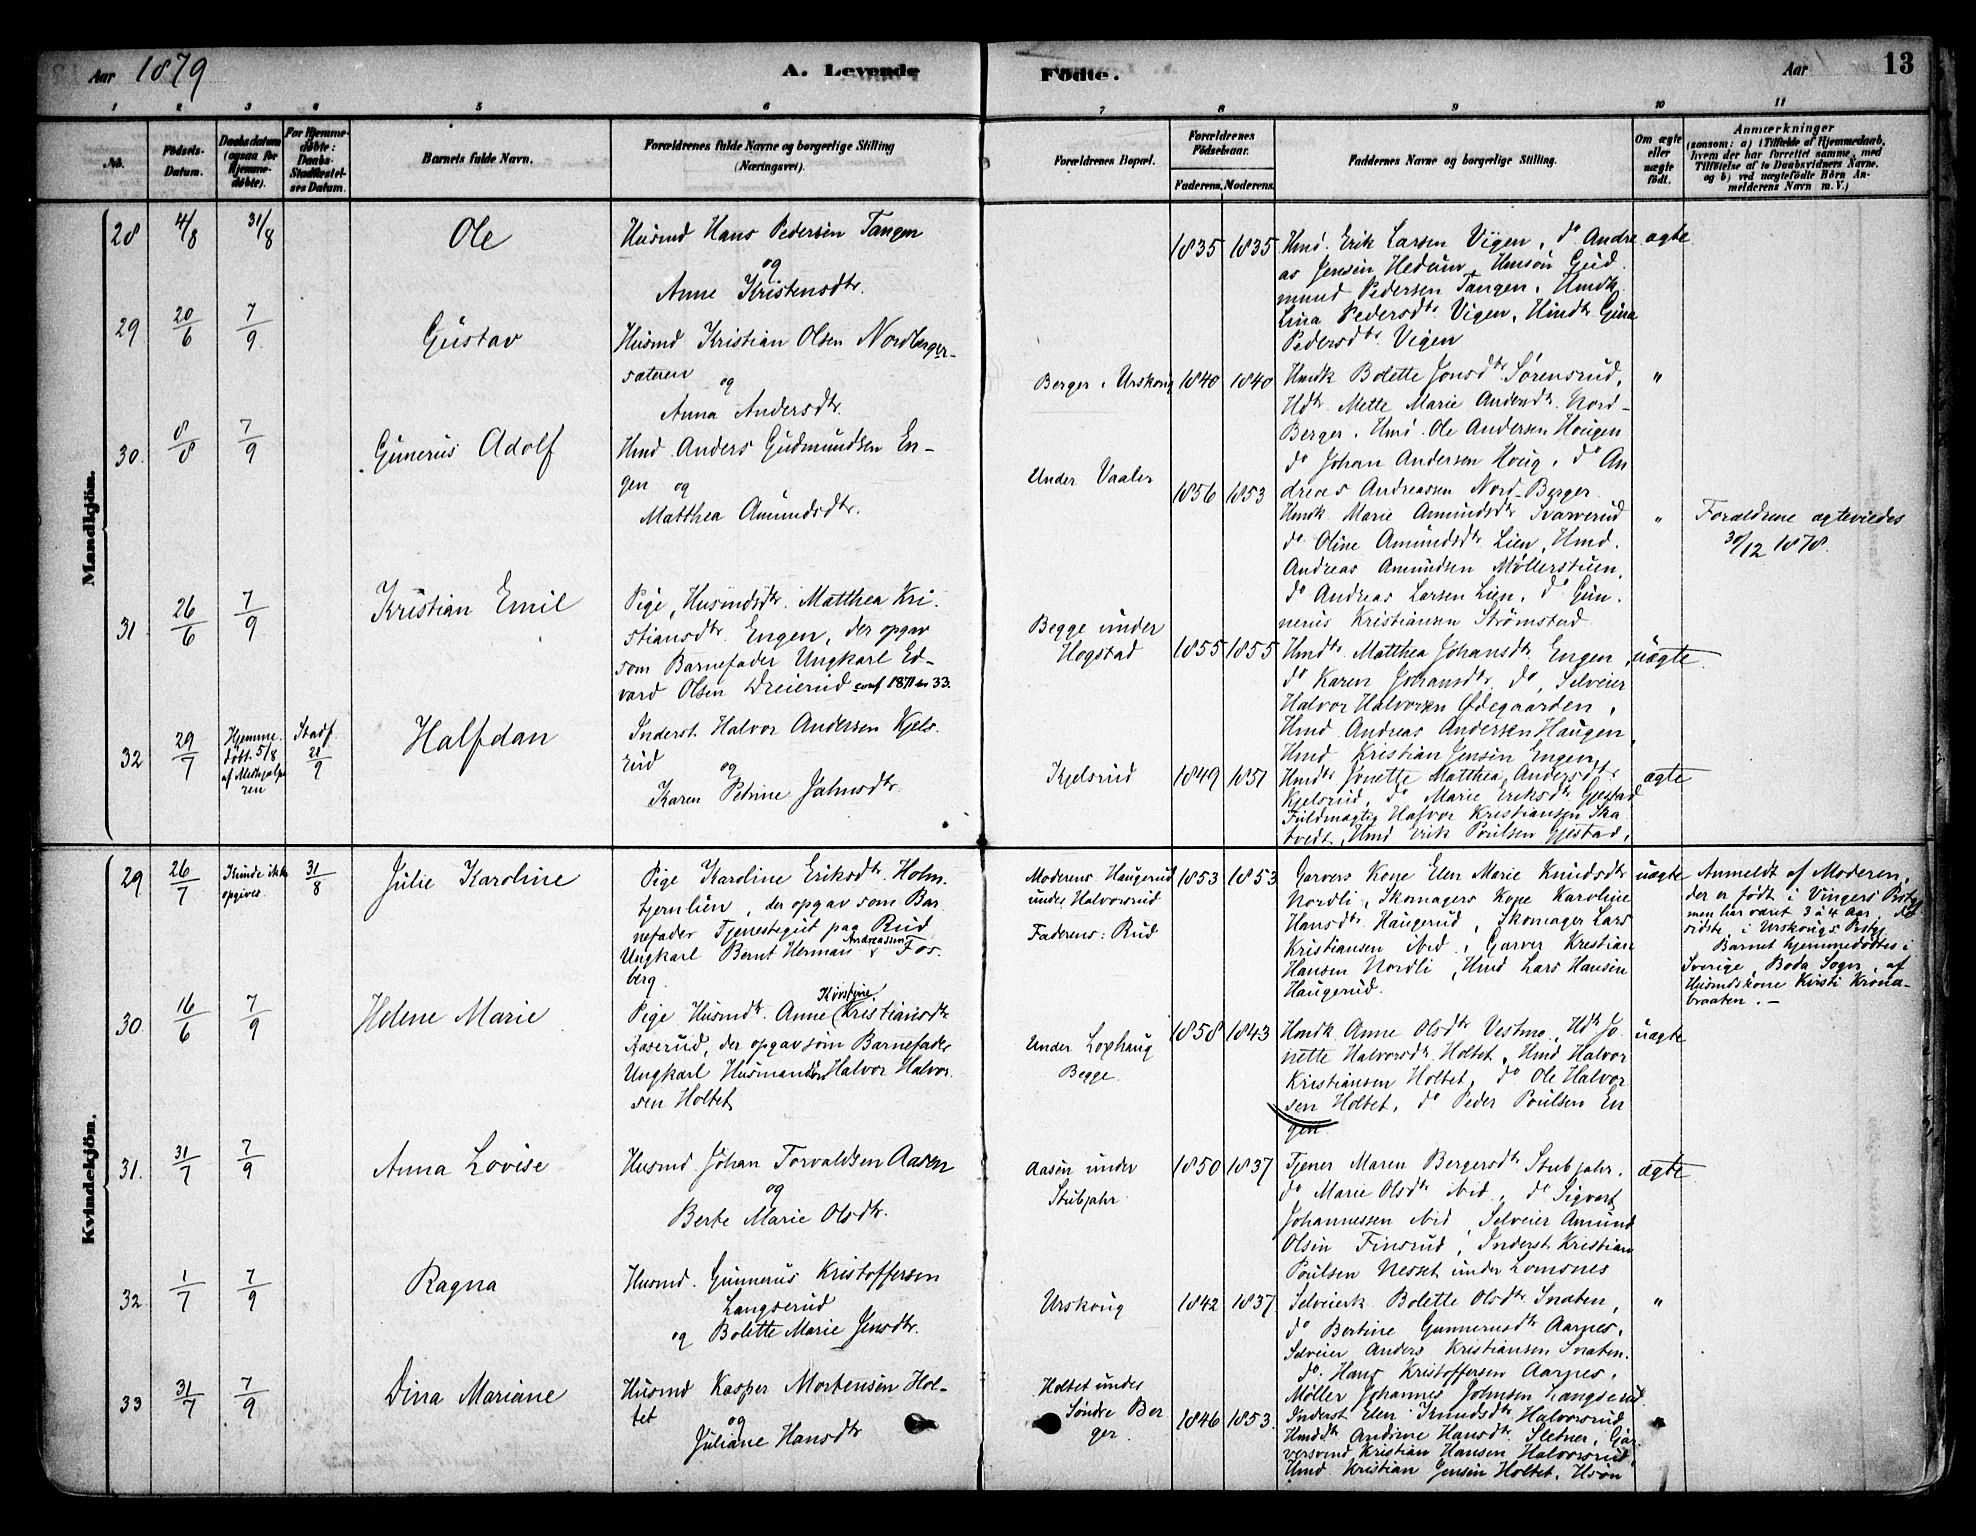 Aar 1879
A. Levende Fødte.
Aar
13
1 2 3 4 5 6 7 8 9 10 11
No.
Fødsels-Datum.
Daabsdatum (ogsaa for Hjemme-døbte).
For Hjemme-døbte: Daabs-Stadfæstel-ses Datum.
Barnets fulde Navn.
Forældrenes fulde Navne og borgerlige Stilling (Næringsvei).
Forældrenes Bopæl.
Forældrenes Fødselsaar.
Faderens. Moderens.
Faddernes Navne og borgerlige Stilling.
Om ægte eller uægte født.
Anmærkninger (saasom: a) i Tilfælde af Hjemmedaab, hvem der har forrettet samme, med Tilføielse af to Daabsvidners Navne, og b) ved uægtefødte Børn An-melderens Navn m. V.)
Mandkjön.
28 4/8 31/8 Ole
Husmd Hans Pedersen Tangen
og
Anne Kristensdtr.
1835 1835
Hmd. Erik Larsen Vigen, do Andre
as Jensen Hedum, Hmsøn Gud
mund Pedersen Tangen, Hmdk
Lina Pedersdtr Vigen, Hmdtr Gina
Pedersdtr Vigen
ægte
29 20/6 7/9 Gustav
Husmd Kristian Olsen Nordberger-
sæteren
og
Anna Andersdtr.
Berger i Urskoug
1840 1840
Hmdk Bolette Jonsdtr Sørensrud,
Hdtr. Mette Marie Andersdtr. Nord-
Berger, Hmd. Ole Andersen Hougen
do Johan Andersen Houg, do An
dreas Andreassen Nord-Berger
"
30. 8/8 7/9 Gunerius Adolf
Hmd Anders Gudmundsen En-
gen og
Matthea Amundsdtr.
Under Vaaler
1856 1853
Hmdk Marie Amundsdtr Svarverud
do Oline Amundsdtr Lien, Hmd.
Andreas Amundsen Møllerstuen,
do Andreas Larsen Lien, do Gun.
nerius Kristiansen Strømstad
"
Forældrene ægteviedes
30/12 1878.
31 26/6 7/9 Kristian Emil
Pige, Husmdsdtr. Matthea Kri.
stiansdtr. Engen, der opgav
som Barnefader Ungkarl Ed-
vard Olsen Dreierud conf 1871 no 33.
Begge under
Hogstad
1855 1855
Hmdtr. Matthea Johansdtr Engen,
do Karen Johansdtr, do, Selveier
Halvor Halvorsen Ødegaarden,
Hmd Andreas Andersen Haugen,
Hmd Kristian Jensen Engen
uægte
32 29/7
Hjemme.
døbt 5/8
af Medhjælpe
ren
Stadf.
21/9
Halfdan
Inderst. Halvor Andersen Kjels.
rud
og
Karen Petrine Jahnsdtr.
Kjelsrud
1849 1851
Hmdtr Jonette Matthea Andersdtr
Kjelsrud, do Marie Eriksdtr Gjestad
Fuldmægtig Halvor Kristiansen Ska
tvedt, Hmd Erik Poulsen Gjestad,
ægte
Kvindekjön.
29 26/7
Kunde ikke
opgives
31/8
Julie Karoline
Pige Karoline Eriksdtr. Holm.
tjernlien, der opgav som Bar
nefader Tjenestegut paa Rud
Ungkarl Bernt Herman Andreassen Fos.
berg.
Moderens: Haugerud
under Halvorsrud
Faderens: Rud
1853 1853
Garvers Kone Elen Marie Knudsdtr
Nordli, Skomagers Kone Karoline
Hansdtr Haugerud, Skomager Lars
Kristiansen ibid, Garver Kristian
Hansen Nordli, Hmd Lars Hansen
Haugerud.
uægte
Anmeldt af Moderen,
der er født i Vingers Prstgj
men har været 3 a 4 Aar, de
sidste, i Urskougs Prstgj.
Barnet hjemmedøbtes i
Sverige, Boda Sogn, af
Husmdskone Kirsti Krona-
braaten. -
30. 16/6 7/9 Helene Marie
Pige Husmdtr. Anne Kirstine Kristiansdtr
Aaserud, der opgav som Barnefader
Ungkarl Husmandssøn Halvor Halvor
sen Holtet
Under Loxhaug
Begge.
1858 1843
Hmdk Anne Olsdtr Vestmo, Hdtr Jo
nette Halvorsdtr Holtet, Hmd Halvor
Kristiansen Holtet, do Ole Halvor
sen Holtet, do Peder Poulsen En
gen.
uægte
31. 31/7 7/9 Anna Lovise
Husmd. Johan Torvaldsen Aasen
og
Berte Marie Olsdtr.
Aasen under
Stubjahr
1850 1837
Tjener Maren Bergersdtr Stubjahr,
do Marie Olsdtr ibid, do Sigvart
Johannessen ibid, Selveier Amund
Olsen Finsrud, Inderst Kristian
Poulsen Nesset under Lomsnes
ægte
32 1/7 7/9 Ragna
Husmd. Gunnerius Kristoffersen
Langserud
og Bolette Marie Jensdtr.
Urskoug
1842 1837
Selveierk. Bolette Olsdtr Snaten,
do Bertine Gunnerusdtr Aarnes,
Selveier Anders Kristiansen Snaten.
do. Hans Kristoffersen Aarnes,
Møller Johannes Johnsen Langserud
"
33 31/7 7/9 Dina Mariane
Husmd Kasper Mortensen Hol-
tet
og
Juliane Hansdtr
Holtet under
Søndre Ber
ger.
1846 1853
Inderst Elen Knudsdtr Halvorsrud
Hmdtr Andrine Hansdtr. Sletner, Gar
versvend Kristian Hansen Halvorsrud,
Hmd Kristian Jensen Holtet, Hsøn
"